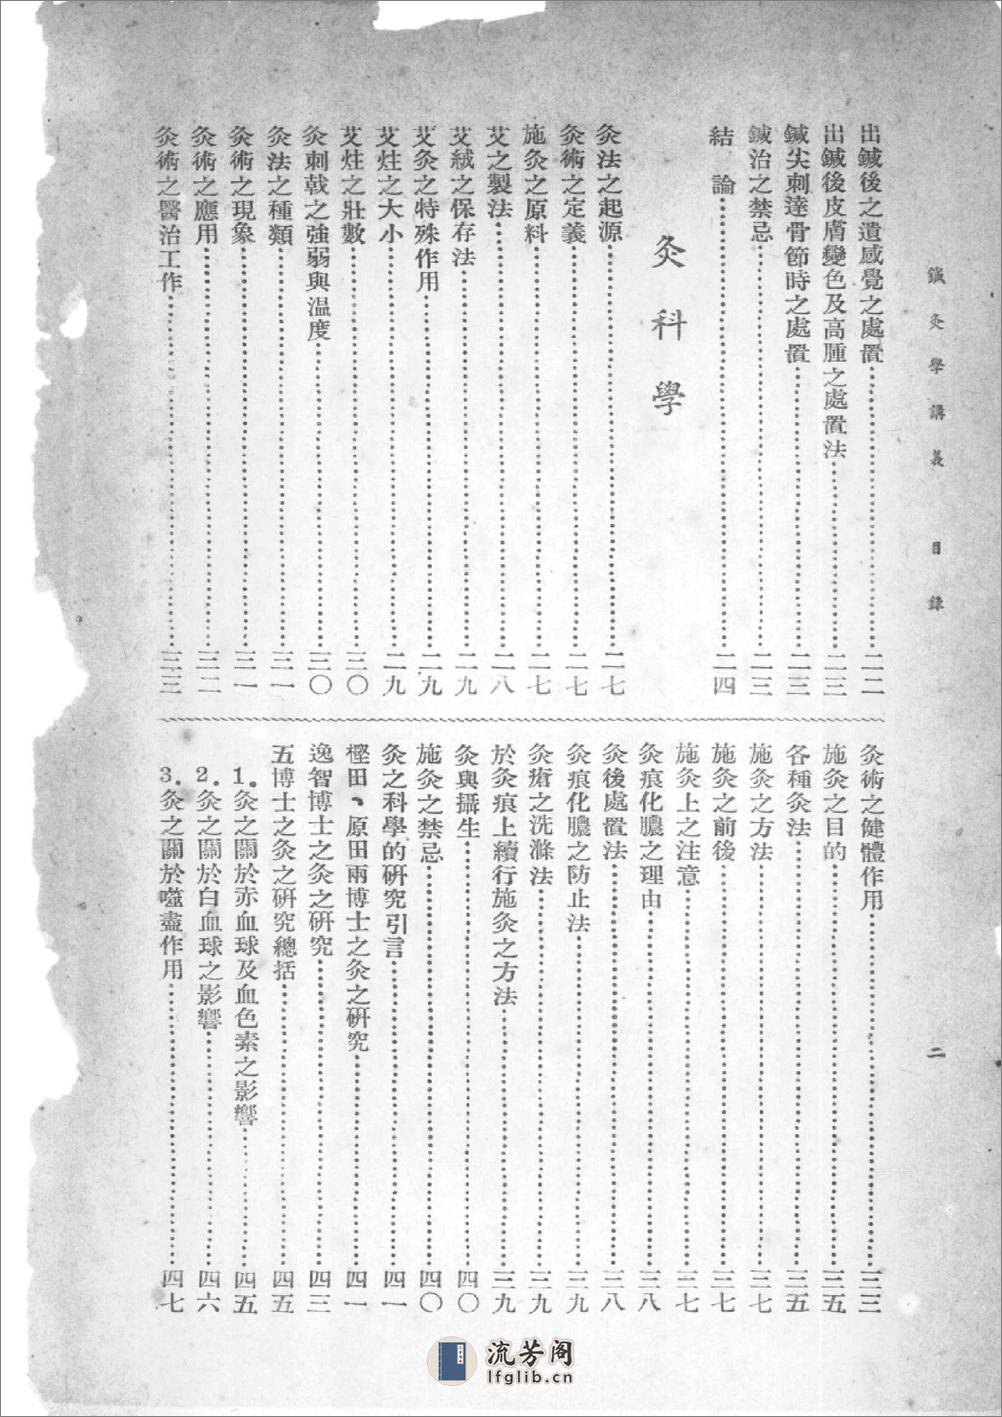 鍼灸學講義　目錄
二
出鍼後之遺感覺之處置……二二
出鍼後皮膚變色及高腫之處置法……二三
鍼尖刺達骨節時之處置……二三
鍼治之禁忌……二三
結論……二四
灸科學
灸法之起源……二七
灸術之定義……二七
施灸之原料……二七
艾之製法……二八
艾絨之保存法……二九
艾灸之特殊作用……二九
艾炷之大小……二九
艾炷之壯數……三〇
灸刺戟之強弱與溫度……三〇
灸法之種類……三一
灸術之現象……三一
灸術之應用……三二
灸術之醫治工作……三三
灸術之健體作用……三三
施灸之目的……三五
各種灸法……三五
施灸之方法……三七
施灸之前後……三七
施灸上之注意……三七
灸痕化膿之理由……三八
灸後處置法……三八
灸痕化膿之防止法……三九
灸瘡之洗滌法……三九
於灸痕上續行施灸之方法……三九
灸與攝生……四〇
施灸之禁忌……四〇
灸之科學的研究引言……四一
樫田、原田兩博士之灸之研究……四一
逸智博士之灸之研究……四三
五博士之灸之研究總括……四五
1.灸之關於赤血球及血色素之影響……四五
2.灸之關於白血球之影響……四六
3.灸之關於噬盡作用……四七
流芳阁
lfglib.cn